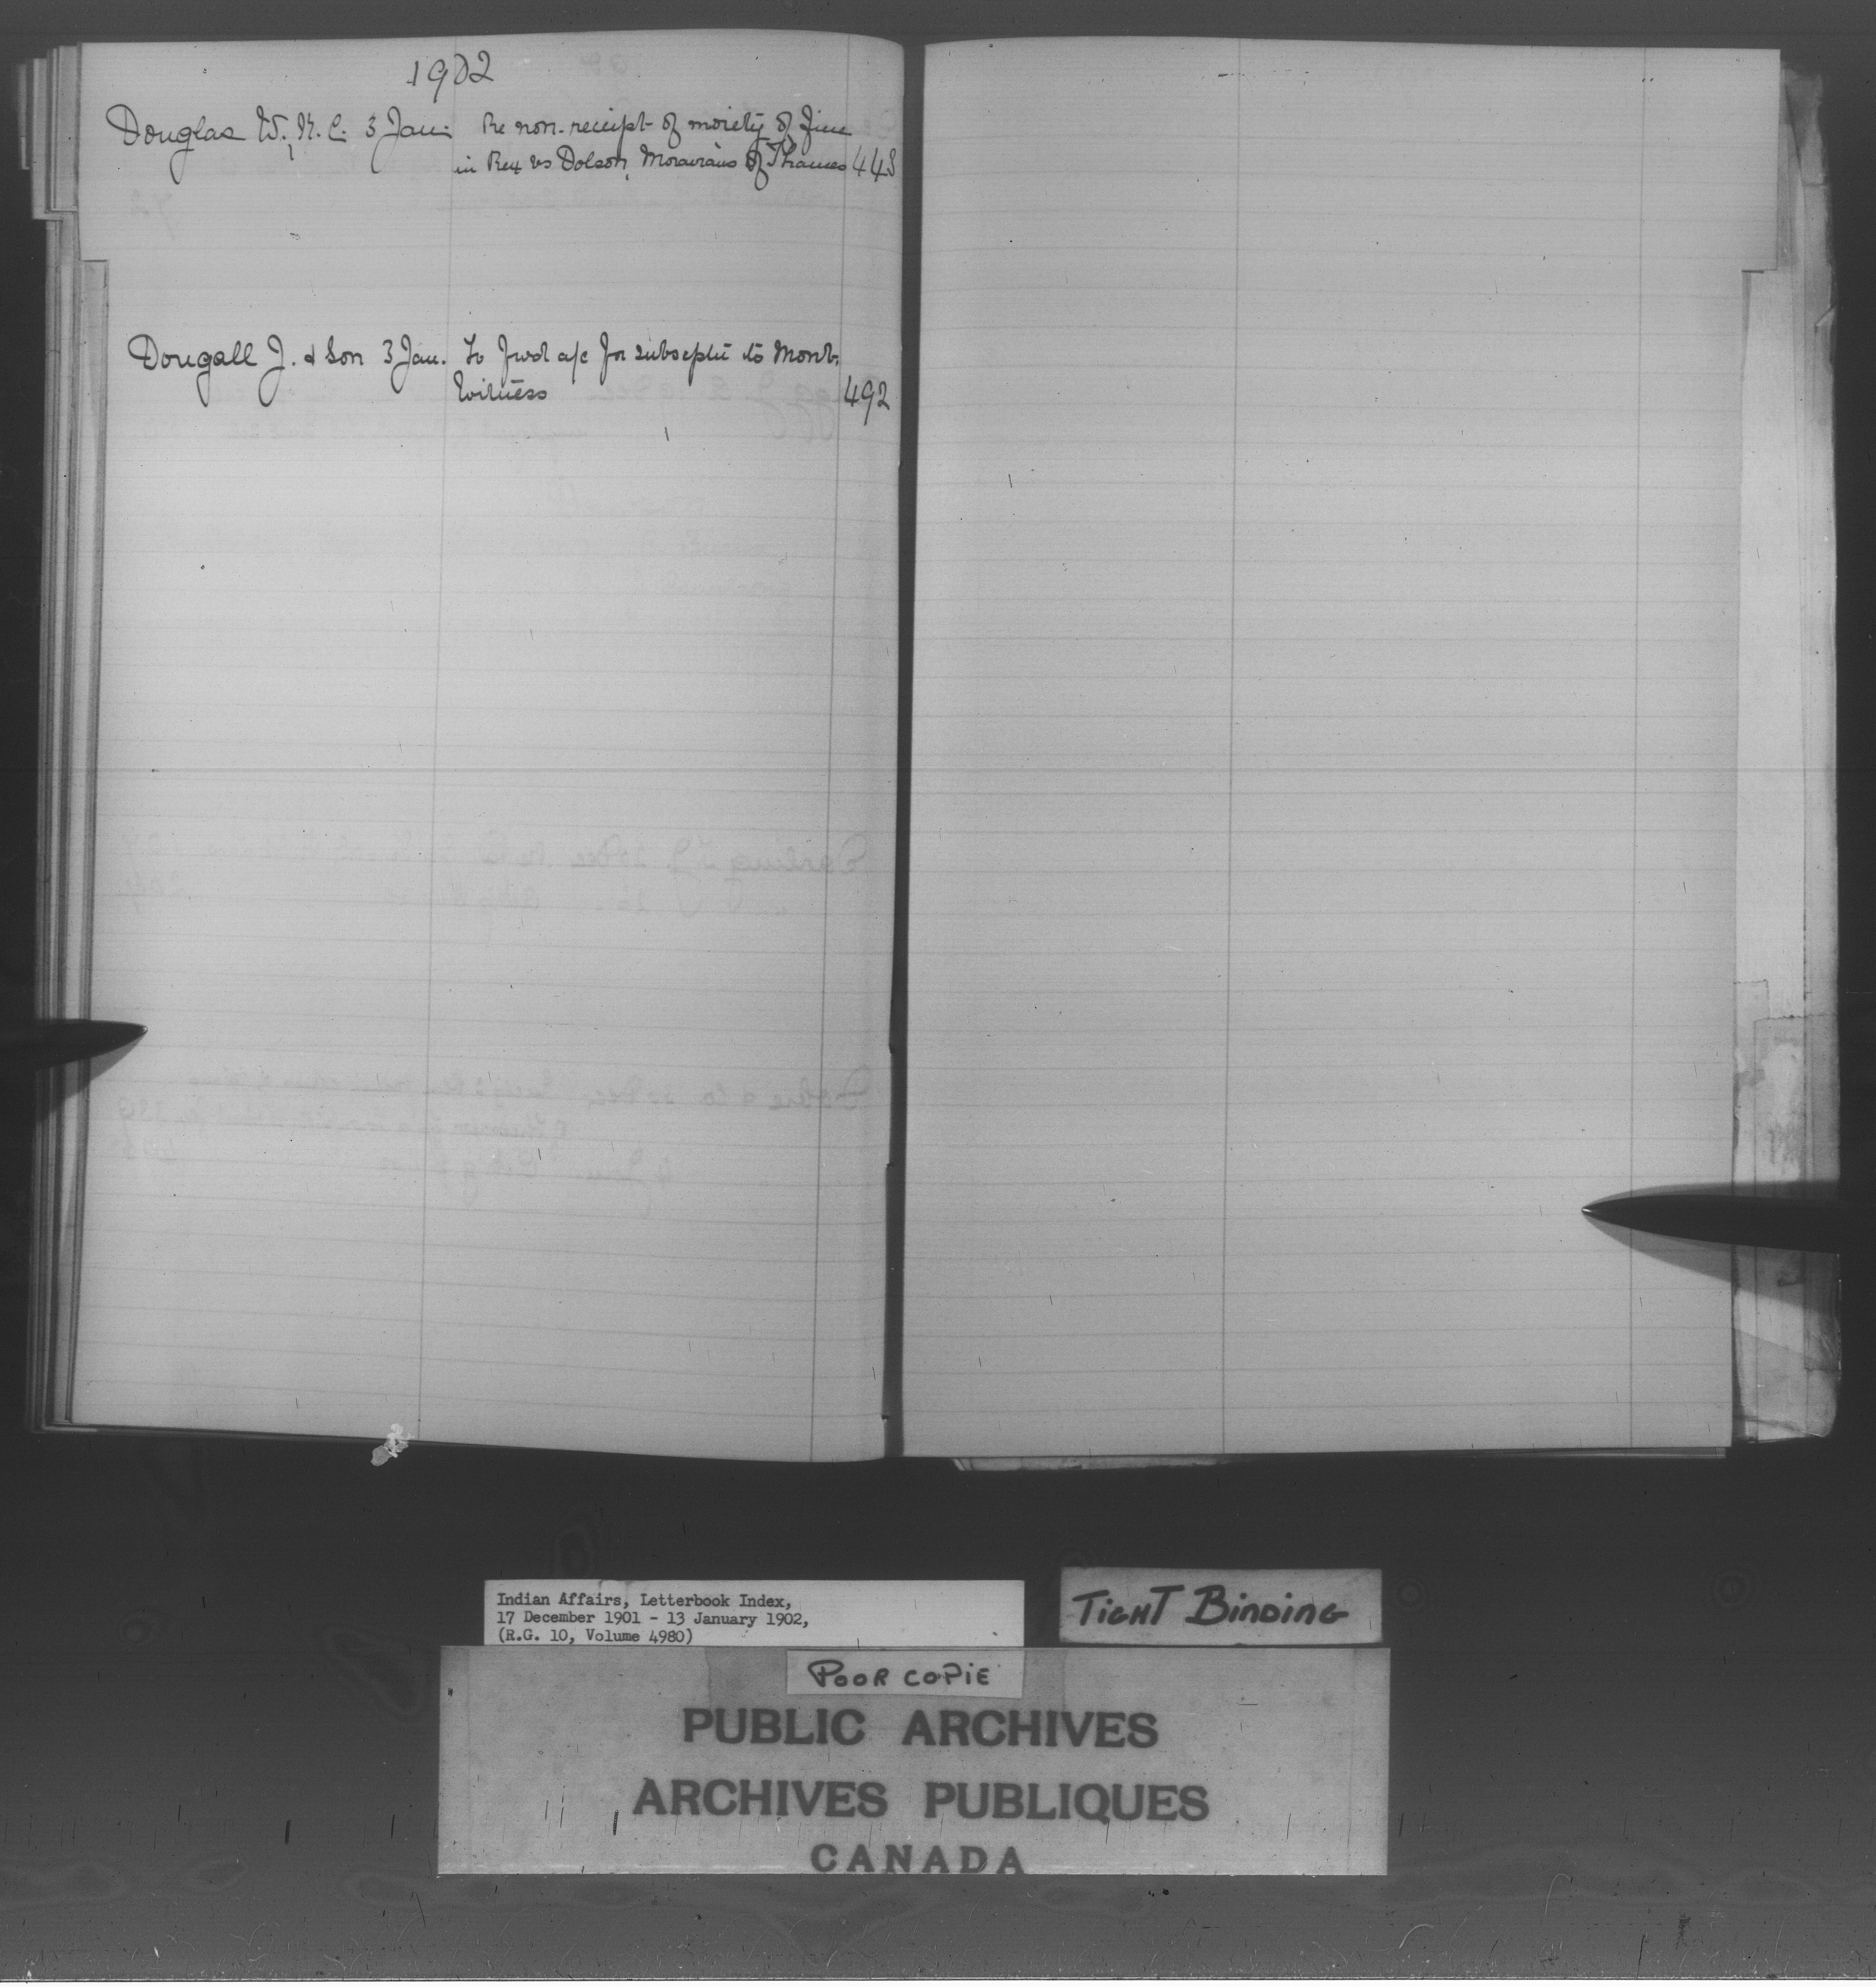 1902
Douglas W. K.C. 3 Jan. Re non-receipt of moiety of fine
in Rex vs Dolson, Moravians of Thames 448
Dougall J. & Son 3 Jan. To fwd a/c for subscptn to Mont.
Witness 492
Indian Affairs, Letterbook Index,
17 December 1901 - 13 January 1902,
(R.G. 10, Volume 4980)
TIGHT BINDING
POOR COPIE
PUBLIC ARCHIVES
ARCHIVES PUBLIQUES
CANADA